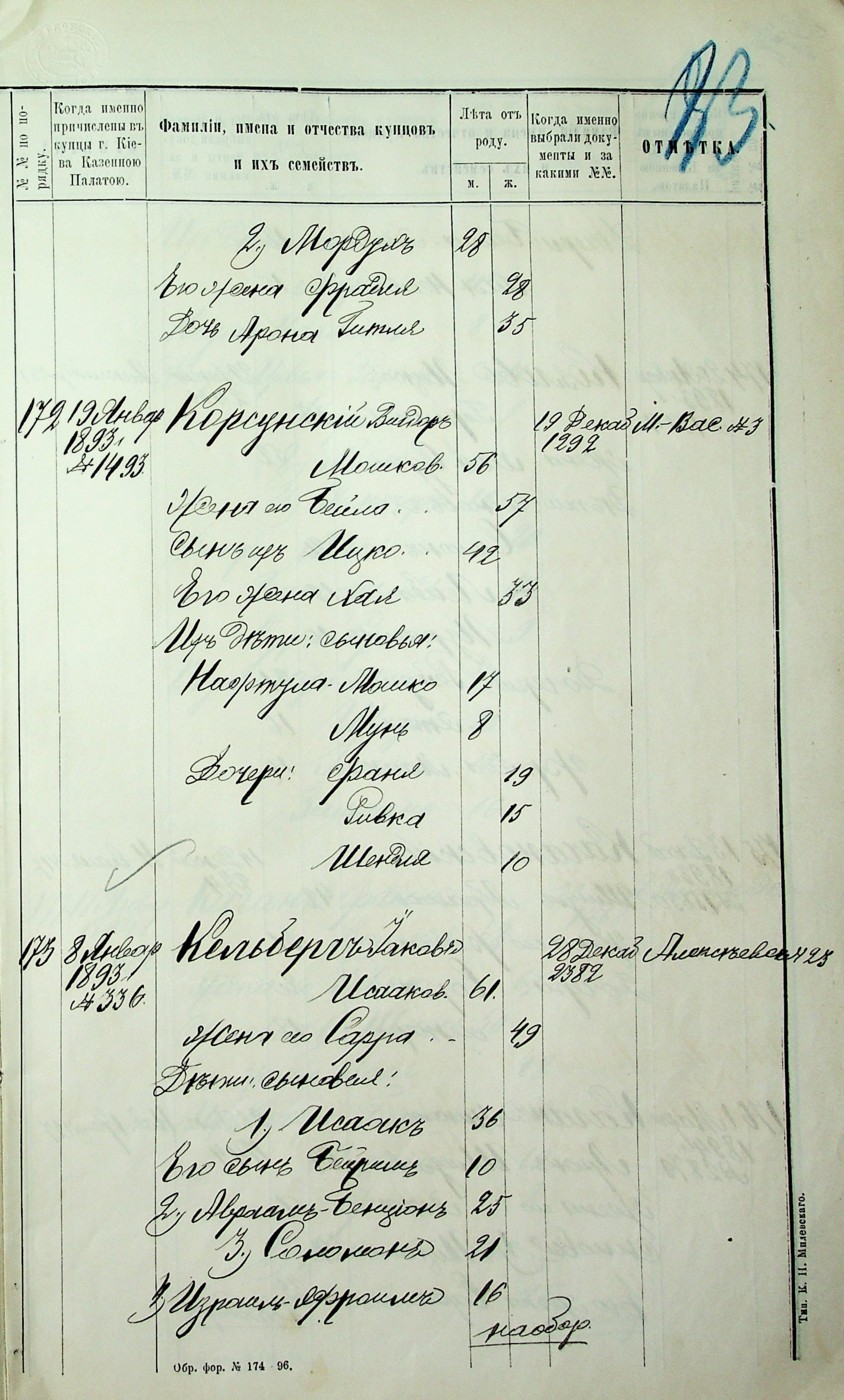 №№ по по-
рядку.
Когда именно
причислены въ
купцы г. Кіе-
ва Казенною
Палатою.
Фамиліи, имена и отчества купцовъ
и ихъ семействъ.
Лѣта отъ
роду.
м. ж.
Когда именно
выбрали доку-
менты и за
какими №№.
ОТМѢТКА.
2) Мордухъ 28
Его жена Фрадля 28
Дочь Арона Гитля 35
172 19 Январ Корсунскій 19 Декаб М.-Вас. №3
1893 1292
№1493 Мошков. 56
Жена его Бейла 57
Сынъ ихъ Ицко 42
Его жена Хая 33
Ихъ дѣти: сыновья:
Нафтула-Мошко 17
Мунь 8
Дочери: Фаня 19
Ривка 15
Шендля 10
173 8 Январ Кельбергъ Яковъ 28 Декаб 23
1893 2382
№336 Исааков. 61
Жена его Сарра 49
Дѣти: сыновья:
1) Исаакъ 36
Его сынъ 10
2) Авраамъ-Бенціонъ 25
3) Соломонъ 21
4) Израиль-Эфроимъ 16
на обор.
Обр. фор. № 174 - 96.
Тип. К. Н. Милевскаго.